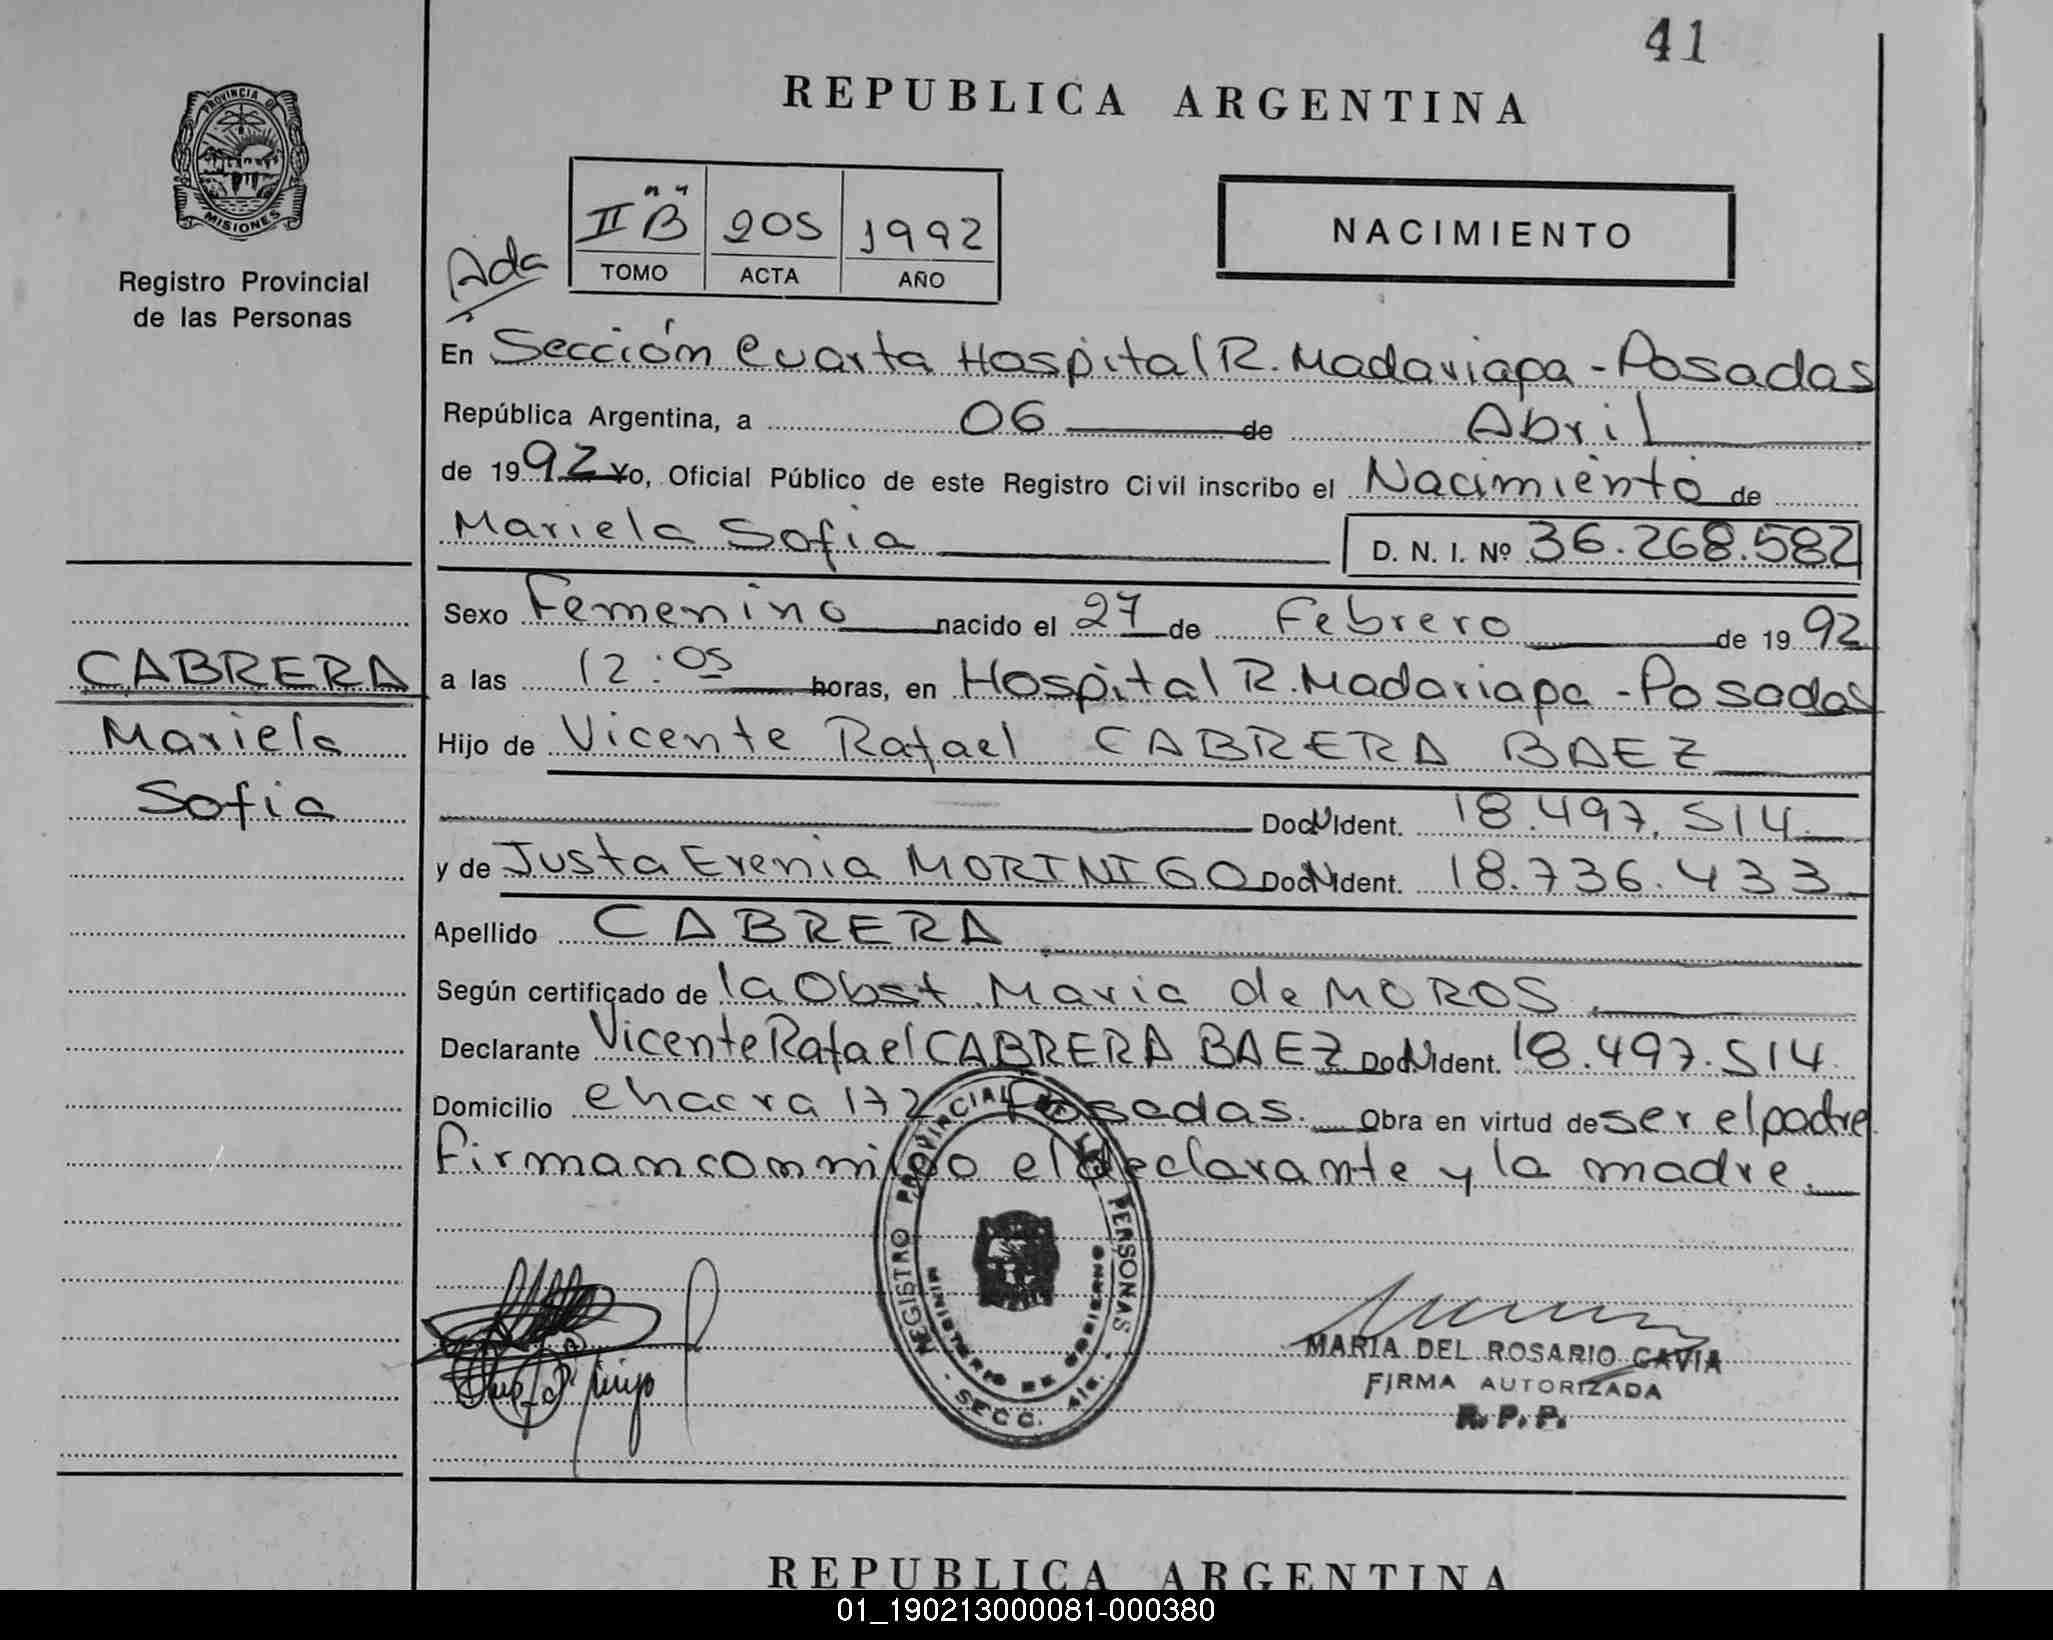 41
REPUBLICA ARGENTINA
PROVINCIA DE
MISIONES
Registro Provincial
de las Personas
Ada
II "B" 205 1992
TOMO ACTA AÑO
NACIMIENTO
En Sección Cuarta Hospital R. Madariaga - Posadas
República Argentina, a 06 de Abril
de 1992 Yo, Oficial Público de este Registro Civil inscribo el Nacimiento de
Mariela Sofia D. N. I. Nº 36.268.582
Sexo Femenino nacido el 27 de Febrero de 1992
a las 12:05 horas, en Hospital R. Madariaga - Posadas
Hijo de Vicente Rafael CABRERA BAEZ
Doc. Ident. 18.497.514
y de Justa Erenia MORINIGO Doc. Ident. 18.736.433
Apellido CABRERA
Según certificado de la Obst. Maria de MOROS
Declarante Vicente Rafael CABRERA BAEZ Doc. Ident. 18.497.514
Domicilio chacra 172 Posadas. Obra en virtud de ser el padre
firman conmigo el declarante y la madre.
CABRERA
Mariela
Sofia
REGISTRO PROVINCIAL DE LAS PERSONAS
MINISTERIO DE GOBIERNO
SECC.
MARIA DEL ROSARIO GAVIA
FIRMA AUTORIZADA
R. P. P.
REPUBLICA ARGENTINA
01_190213000081-000380